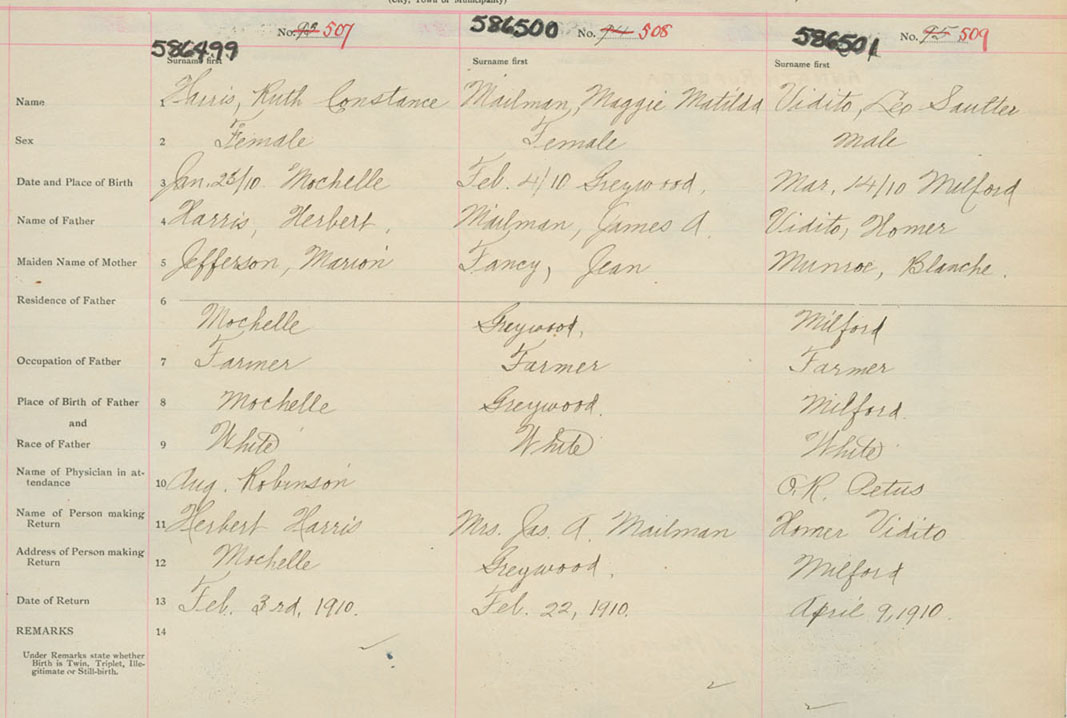 (City, Town or Municipality)
586499 No. 93 507 586500 No. 94 508 586501 No. 95 509
Surname first Surname first Surname first
Name 1 Harris, Ruth Constance Mailman, Maggie Matilda Vidito, Leo Saulter
Sex 2 Female Female Male
Date and Place of Birth 3 Jan. 23/10 Mochelle Feb. 4/10 Greywood, Mar. 14/10 Milford
Name of Father 4 Harris, Herbert, Mailman, James A. Vidito, Homer
Maiden Name of Mother 5 Jefferson, Marion Fancy, Jean Munroe, Blanche.
Residence of Father 6
Mochelle Greywood, Milford
Occupation of Father 7 Farmer Farmer Farmer
Place of Birth of Father 8 Mochelle Greywood. Milford.
and
Race of Father 9 White White White
Name of Physician in at-
tendance 10 Aug. Robinson O.R. Petus
Name of Person making
Return 11 Herbert Harris Mrs. Jas. A. Mailman Homer Vidito
Address of Person making
Return 12 Mochelle Greywood, Milford
Date of Return 13 Feb. 3rd, 1910. Feb. 22, 1910. April 9, 1910.
REMARKS 14
Under Remarks state whether
Birth is Twin, Triplet, Ille-
gitimate or Still-birth.